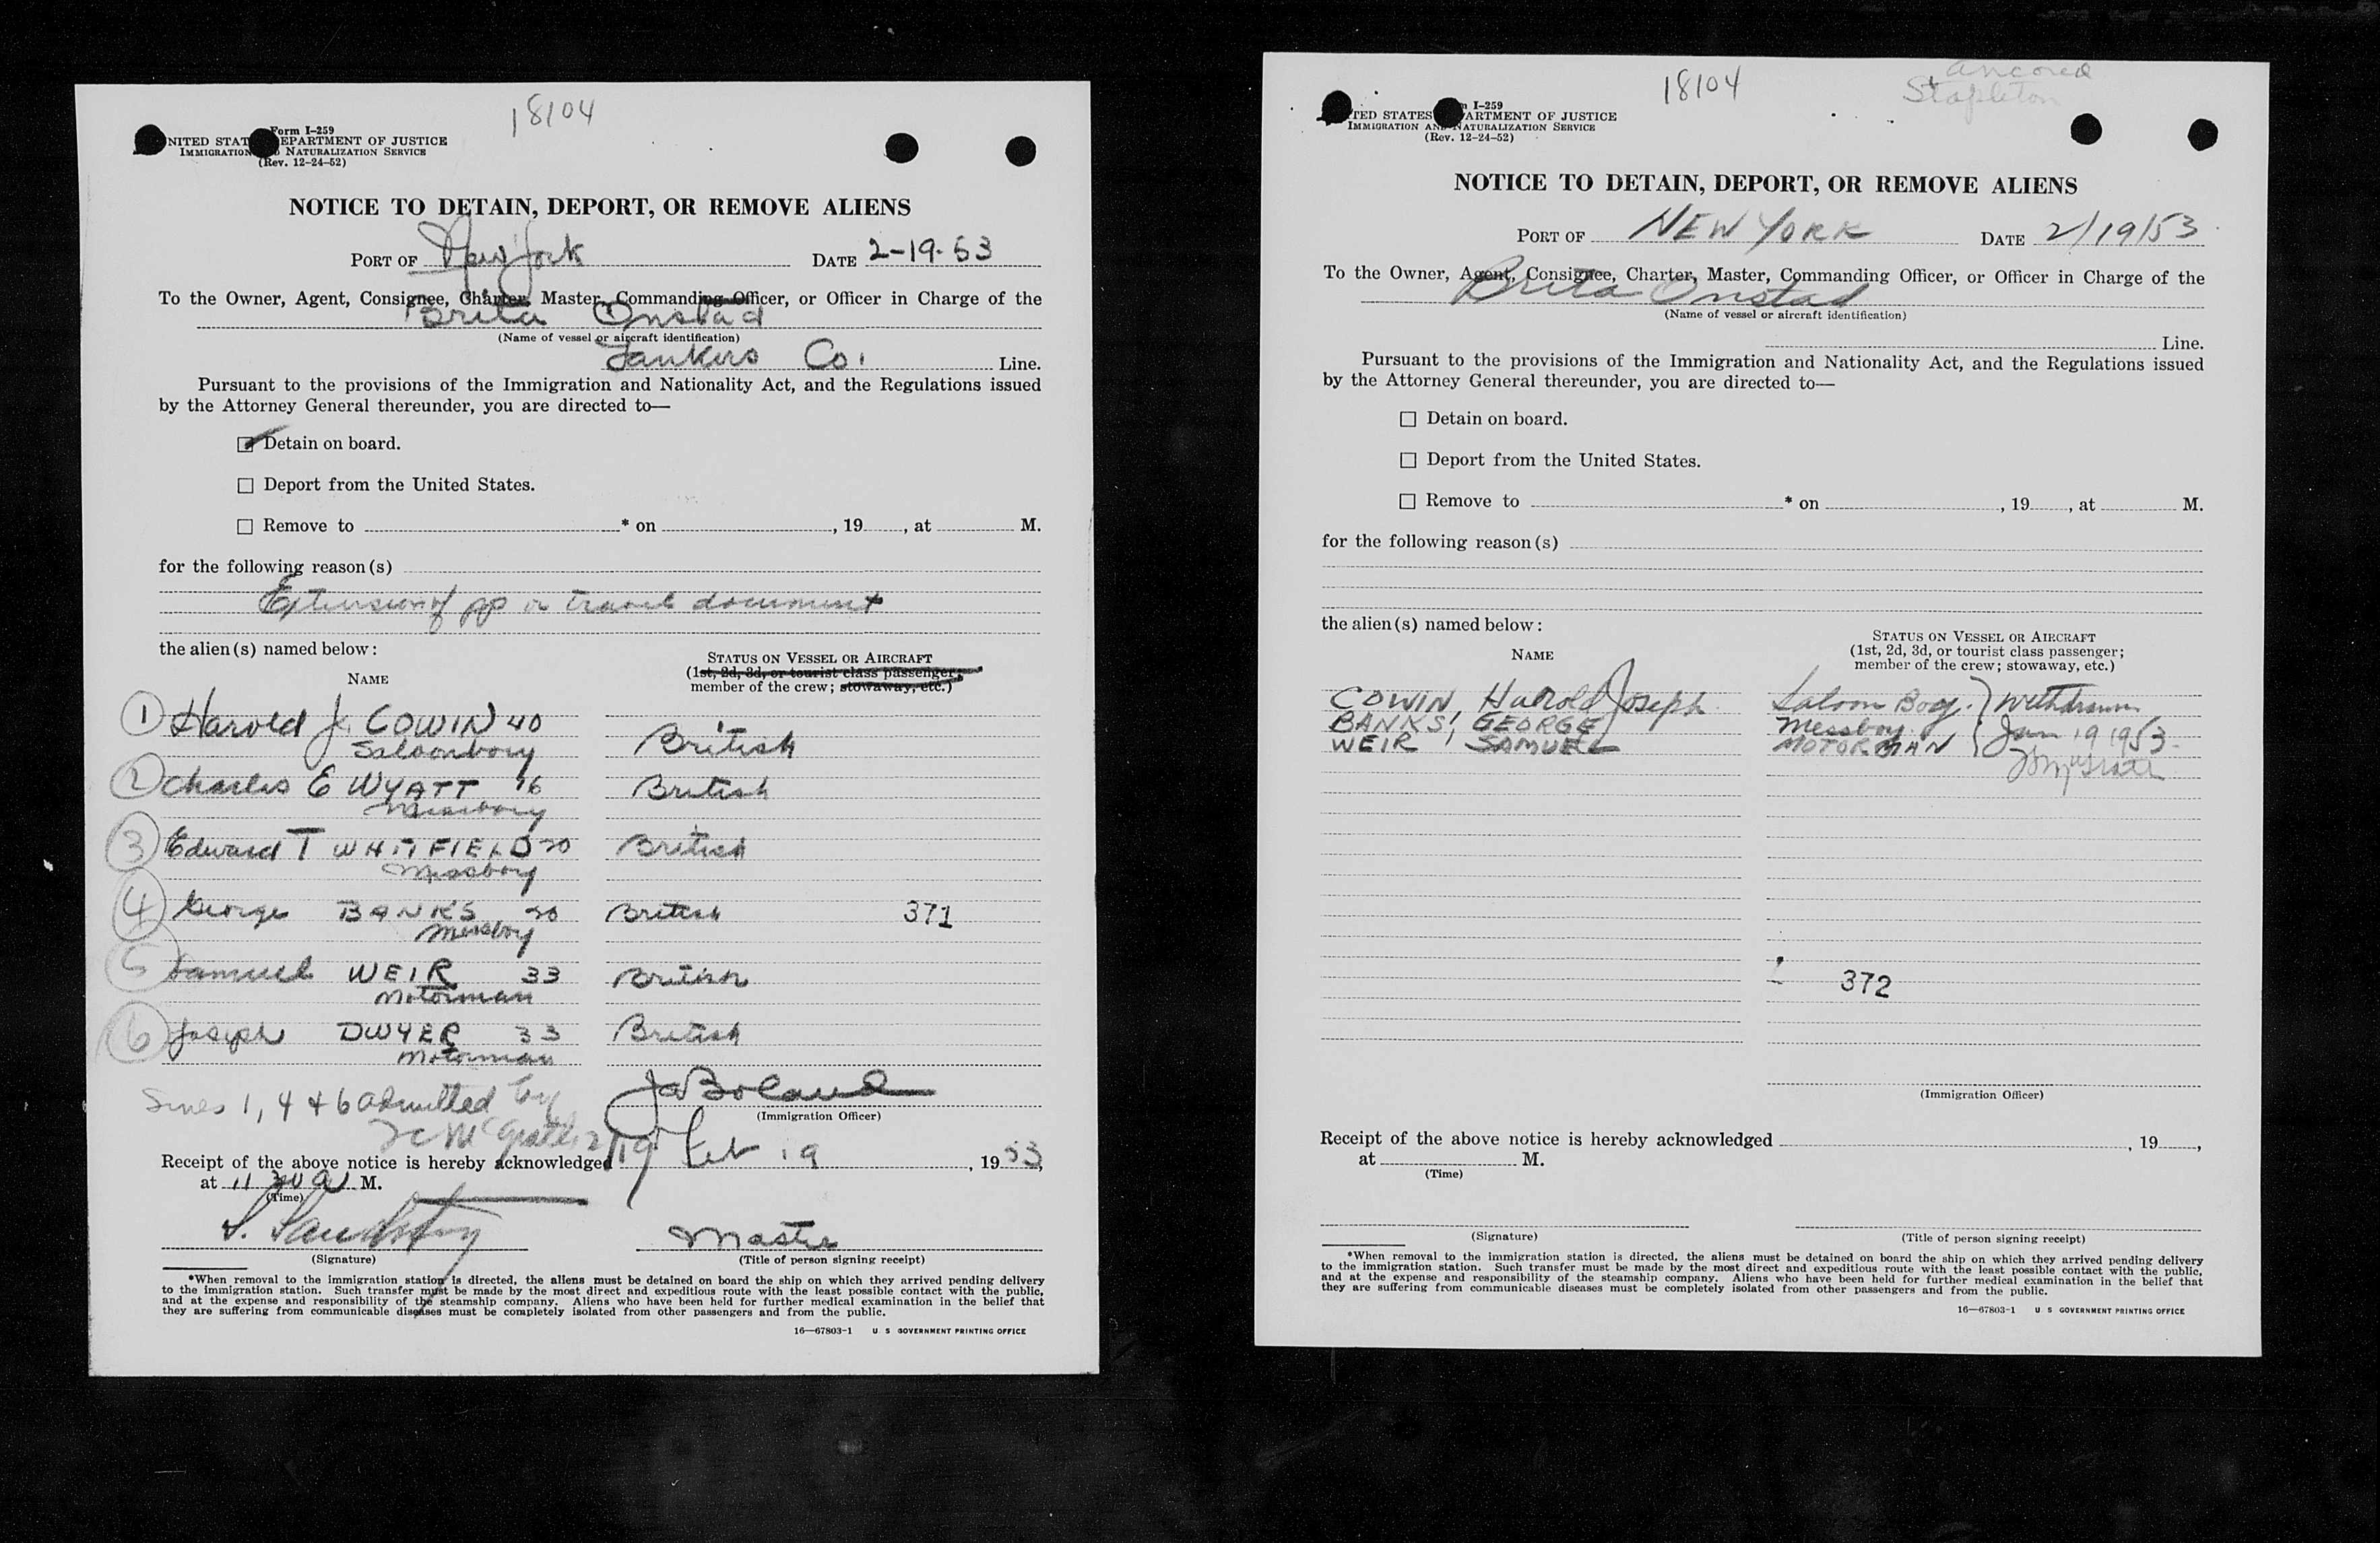 18104
Form I-259
NITED STAT EPARTMENT OF JUSTICE
IMMIGRATION NATURALIZATION SERVICE
(Rev. 12-24-52)
NOTICE TO DETAIN, DEPORT, OR REMOVE ALIENS
PORT OF New York DATE 2-19-53
To the Owner, Agent, Consignee, Charter, Master, Commanding Officer, or Officer in Charge of the
Brita Onstad
(Name of vessel or aircraft identification)
Tankers Co. Line.
Pursuant to the provisions of the Immigration and Nationality Act, and the Regulations issued
by the Attorney General thereunder, you are directed to—
Detain on board.
Deport from the United States.
Remove to * on , 19 , at M.
for the following reason(s)
Extension of pp or travel document
the alien(s) named below:
STATUS ON VESSEL OR AIRCRAFT
(1st, 2d, 3d, or tourist class passenger;
member of the crew; stowaway, etc.)
NAME
1 Harold J. COWIN 40 British
Saloonboy
2 Charles E WYATT 16 British
Messboy
3 Edward T WHITFIELD 20 British
Messboy
4 George BANKS 20 British 371
Messboy
5 Samuel WEIR 33 British
Motorman
6 Joseph DWYER 33 British
Motorman
1, 4 + 6 admitted by
McGrath 2/19
(Immigration Officer)
Receipt of the above notice is hereby acknowledged Feb 19, 1953,
at 11 M.
(Time)
Master
(Signature) (Title of person signing receipt)
*When removal to the immigration station is directed, the aliens must be detained on board the ship on which they arrived pending delivery
to the immigration station. Such transfer must be made by the most direct and expeditious route with the least possible contact with the public,
and at the expense and responsibility of the steamship company. Aliens who have been held for further medical examination in the belief that
they are suffering from communicable diseases must be completely isolated from other passengers and from the public.
16—67803-1 U S GOVERNMENT PRINTING OFFICE
18104
ancored
Stapleton
I-259
TED STATES ARTMENT OF JUSTICE
IMMIGRATION AND NATURALIZATION SERVICE
(Rev. 12-24-52)
NOTICE TO DETAIN, DEPORT, OR REMOVE ALIENS
PORT OF NEW YORK DATE 2/19/53
To the Owner, Agent, Consignee, Charter, Master, Commanding Officer, or Officer in Charge of the
Brita Onstad
(Name of vessel or aircraft identification)
Line.
Pursuant to the provisions of the Immigration and Nationality Act, and the Regulations issued
by the Attorney General thereunder, you are directed to—
Detain on board.
Deport from the United States.
Remove to * on , 19 , at M.
for the following reason(s)
the alien(s) named below:
STATUS ON VESSEL OR AIRCRAFT
(1st, 2d, 3d, or tourist class passenger;
member of the crew; stowaway, etc.)
NAME
COWIN, Harold Joseph Saloon Boy. Withdrawn
BANKS, GEORGE Messboy Jan 19 1953
WEIR, SAMUEL MOTORMAN
McGrath
372
(Immigration Officer)
Receipt of the above notice is hereby acknowledged , 19 ,
at M.
(Time)
(Signature) (Title of person signing receipt)
*When removal to the immigration station is directed, the aliens must be detained on board the ship on which they arrived pending delivery
to the immigration station. Such transfer must be made by the most direct and expeditious route with the least possible contact with the public,
and at the expense and responsibility of the steamship company. Aliens who have been held for further medical examination in the belief that
they are suffering from communicable diseases must be completely isolated from other passengers and from the public.
16—67803-1 U S GOVERNMENT PRINTING OFFICE